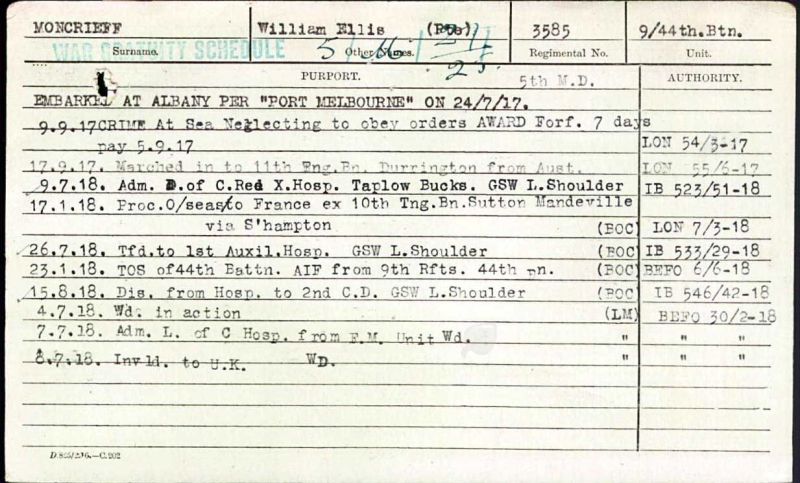 MONCRIEFF William Ellis (Pte) 3585 9/44th.Btn.
WAR GRATUITY SCHEDULE
Surname. Other Names. Regimental No. Unit.
PURPORT. 5th M.D. AUTHORITY.
EMBARKED AT ALBANY PER "PORT MELBOURNE" ON 24/7/17.
9.9.17 CRIME At Sea Neglecting to obey orders AWARD Forf. 7 days
pay 5.9.17 LON 54/3-17
17.9.17. Marched in to 11th Tng.Bn. Durrington from Aust. LON 55/6-17
9.7.18. Adm. D.of C.Red X.Hosp. Taplow Bucks. GSW L.Shoulder IB 523/51-18
17.1.18. Proc.O/seas to France ex 10th Tng.Bn.Sutton Mandeville
via S'hampton (BOC) LON 7/3-18
26.7.18. Tfd.to 1st Auxil.Hosp. GSW L.Shoulder (BOC) IB 533/29-18
23.1.18. TOS of 44th Battn. AIF from 9th Rfts. 44th Bn. (BOC) BEFO 6/6-18
15.8.18. Dis. from Hosp. to 2nd C.D. GSW L.Shoulder (BOC) IB 546/42-18
4.7.18. Wd. in action (LM) BEFO 30/2-18
7.7.18. Adm. L. of C Hosp. from F.M. Unit Wd. " " "
8.7.18. Invld. to U.K. WD. " " "
D.805/2.16.—C.202